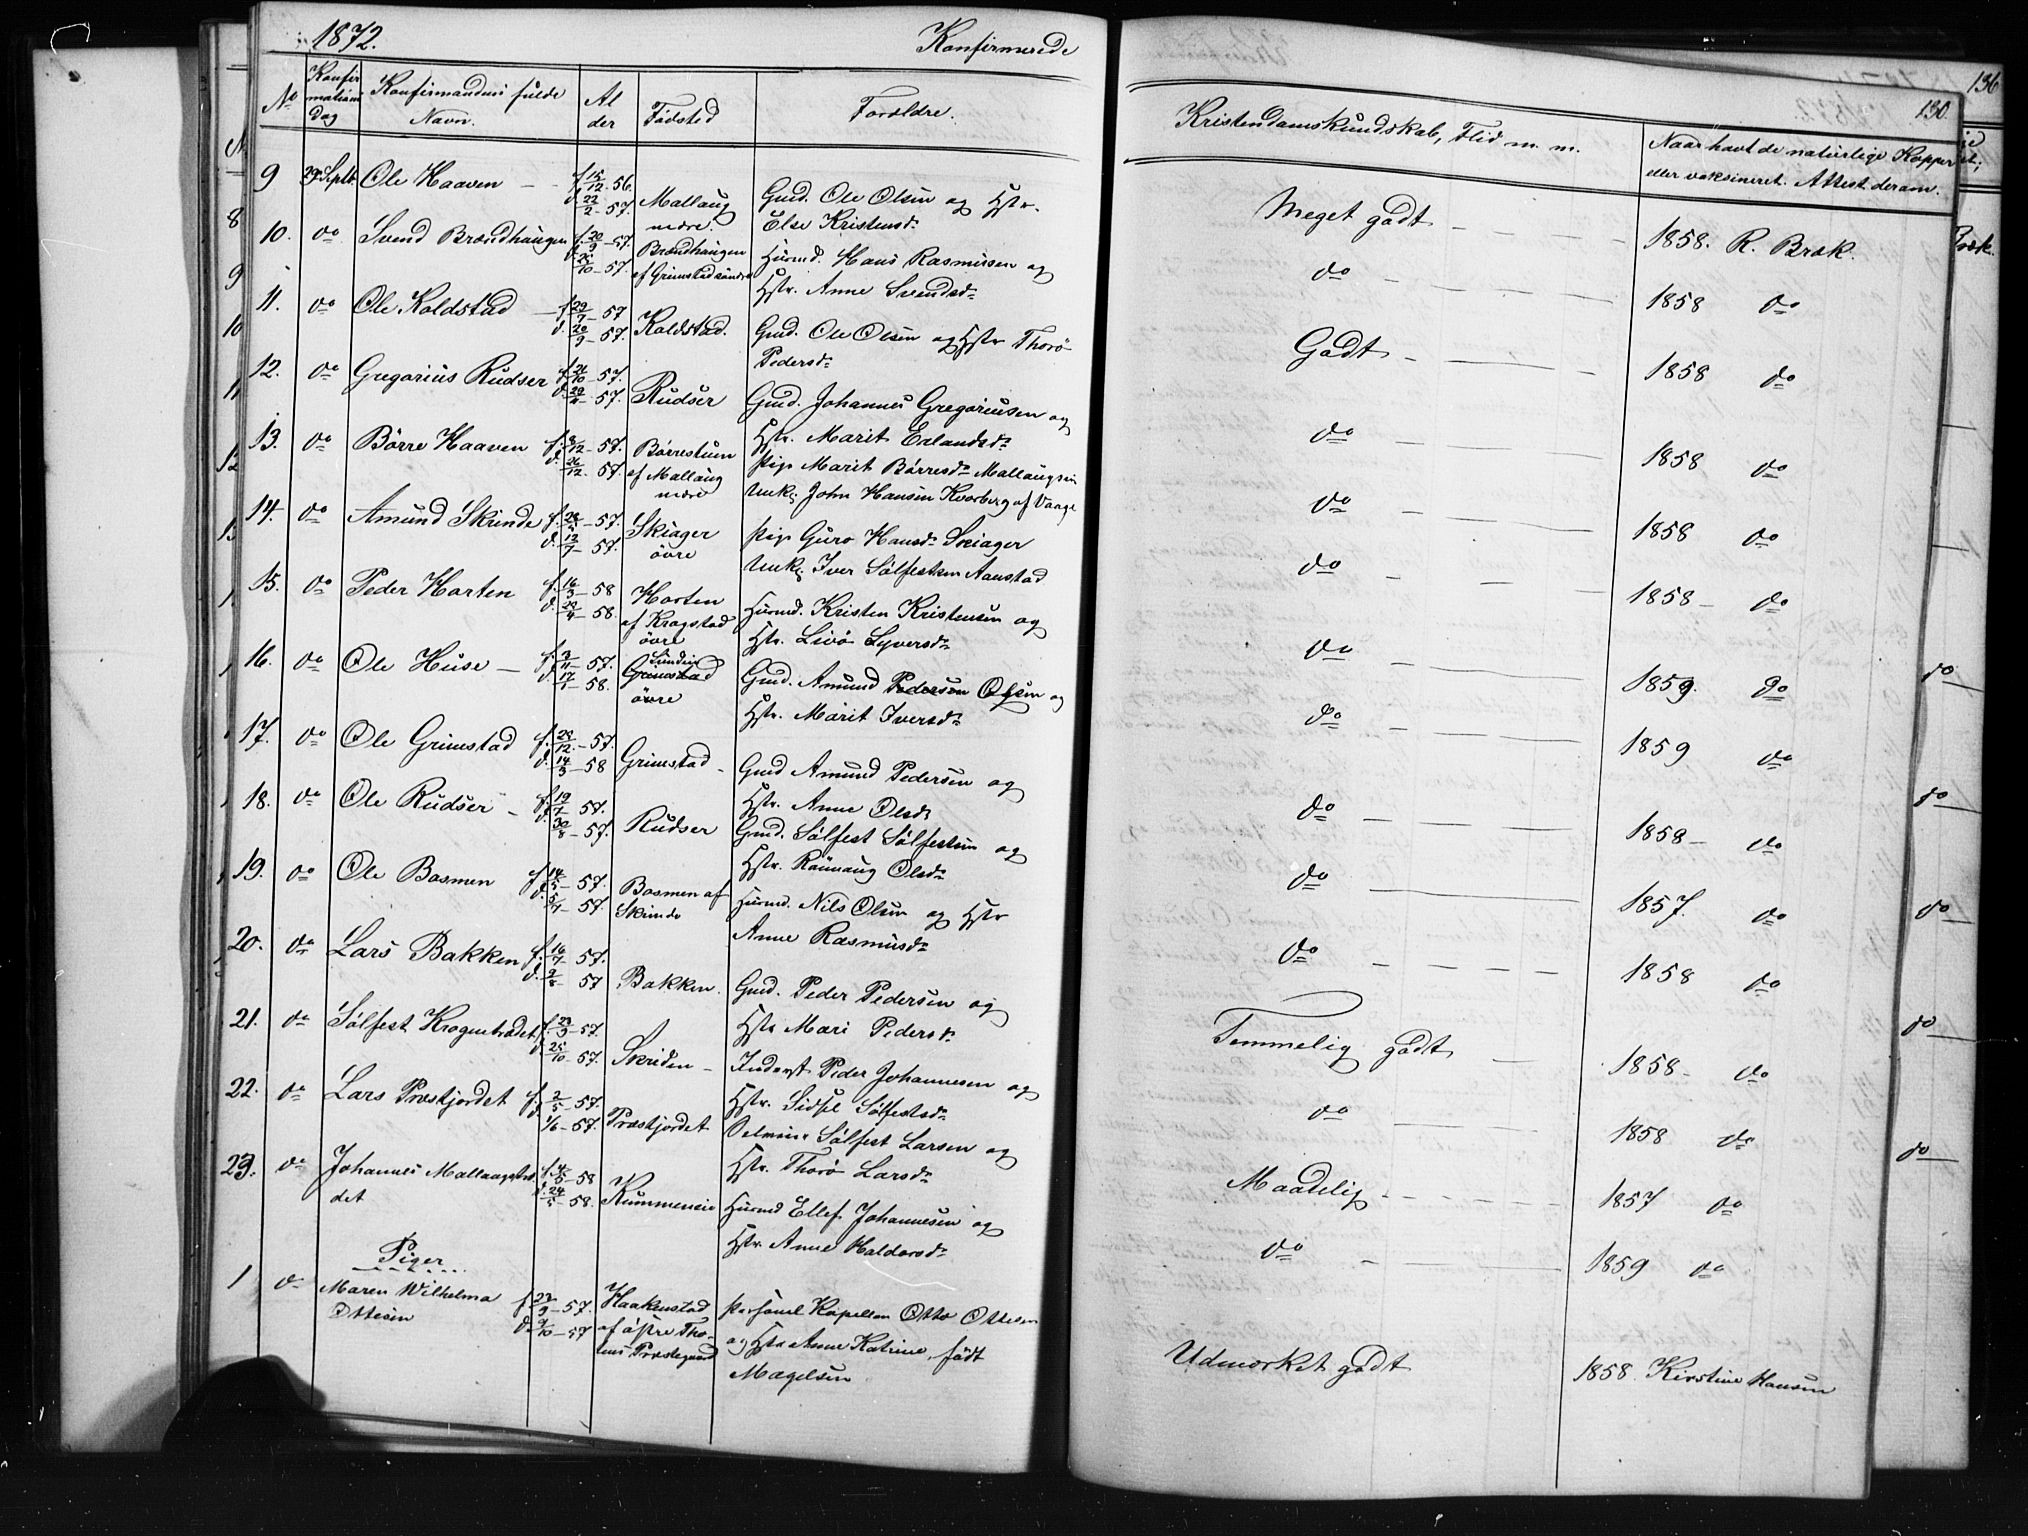 1872. Konfirmerede
No Konfirmations Dag Konfirmandens fulde Navn. Alder Födsted Forældre.
9 29 Septb. Ole Haaven — f. 15/12-56. d. 22/2-57. Mallaug nedre. Gmd. Ole Olsen og Hstr. Else Kristensd.
10. do Svend Brændhaugen f. 20/9-57. d. 25/10-57. Brændhaugen af Grimstad söndre Husmd. Hans Rasmussen og Hstr. Anne Svendsd.
11. do Ole Koldstad — f. 29/7-57 d. 20/9-57. Koldstad. Gmd. Ole Olsen og Hstr Thorö Pedersd.
12. do Gregorius Rudser f. 21/10-57. d. 29/11-57. Rudser Gmd. Johannes Gregoriusen og Hstr. Marit Erlandsd.
13. do Börre Haaven f. 8/12-57. d. 26/12-57. Börrestuen af Mallaug nedre Pige Marit Börresd. Mallaugsen Unk. John Hansen Kvarberg af Vaage
14. do Amund Skrinde f. 28/5-57. d. 12/7-57. Skiager övre Pige Guro Hansd. Skiager Unk. Iver Sölfestsen Aanstad
15. do Peder Horten f. 16/3-58 d. 29/4-58. Horten af Kragstad övre Husmd. Kristen Kristensen og Hstr. Livö Syversd.
16. do Ole Huse — f. 2/11-57. d. 17/1-58. Grimstad övre Gmd. Amund Pedersen Olsen og Hstr. Marit Iversd.
17. do Ole Grimstad f. 29/12-57. d. 14/3-58 Grimstad — Gmd Amund Pedersen og Hstr. Anne Olsd.
18. do Ole Rudser — f. 19/7-57. d. 30/8-57. Rudser Gmd. Sölfest Sölfestsen og Hstr. Rönnaug Olsd.
19. do Ole Bosmen f. 14/5-57. d. 5/7-57. Bosmen af Skrinde Husmd. Nils Olsen og Hstr Anne Rasmusd.
20. do Lars Bakken f. 16/7-57. d. 9/8-57 Bakken. Gmd. Peder Pedersen og Hstr Mari Pedersd.
21. do Sölfest Krogentrædet f. 23/3-57. d. 25/10-57. Skriden — Inderst Peder Johannesen og Hstr. Sidsel Sölfestsd.
22. do Lars Præstjordet f. 2/5-57. d. 1/6-57. Præstjordet Sölfest Larsen og Hstr. Thorö Larsd.
23. do Johannes Mallaugstrædet f. 4/5-58 d. 24/5-58. Kummeneie Husmd Ellef Johannesen og Hstr. Anne Haldorsd.
Piger
1 do Maren Wilhelma Ottesen f. 22/9-57. d. 9/10-57 Haakenstad af östre Thotens Præstegaard Personel Kapellan Otto Ottesen og Hstr Anne Katrine född Magelsen
136
130.
Kristendomskundskab, Flid m. m. Naar havt de naturlige Kopper eller vaksineret. Attest derom.
Meget godt — — — — 1858. R. Bræk.
do — — — — 1858 do
Godt — — — 1858 do
do — — — 1858 do
do — — — — 1858 do
do — — — 1858 — do
do — — — 1859. do
do — — — 1859 do
do — — — 1858 — do
do — — 1857. do
do — — — — 1858 do
Temmelig godt — 1858 — do
do — — — 1858 do
Maadelig — — — 1857 do
do — — 1859 do
Udmærket godt 1858. Kirstine Hansen